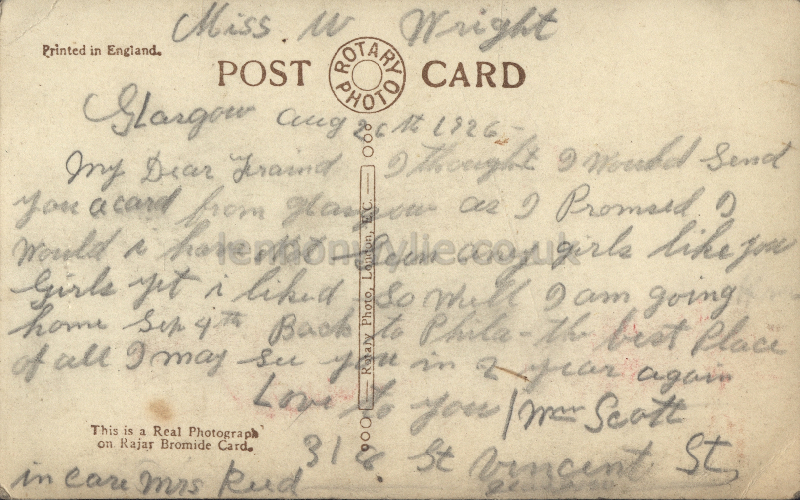 Miss W Wright
Printed in England.
POST CARD
ROTARY PHOTO
Glasgow aug 26th 1926
My Dear Fraind I thought I Would Send
you a card from glasgow as I Promised I
Would i have not Seen any girls like you
Girls yet i liked So Well I am going
home Sep 4th Back to Phila - the best Place
of all I may See you in 2 year again
Love to you / Wm Scott
Rotary Photo, London, E.C.
This is a Real Photograph
on Rajar Bromide Card.
St Vincent St
in care Mrs Reid
lennonwylie.co.uk